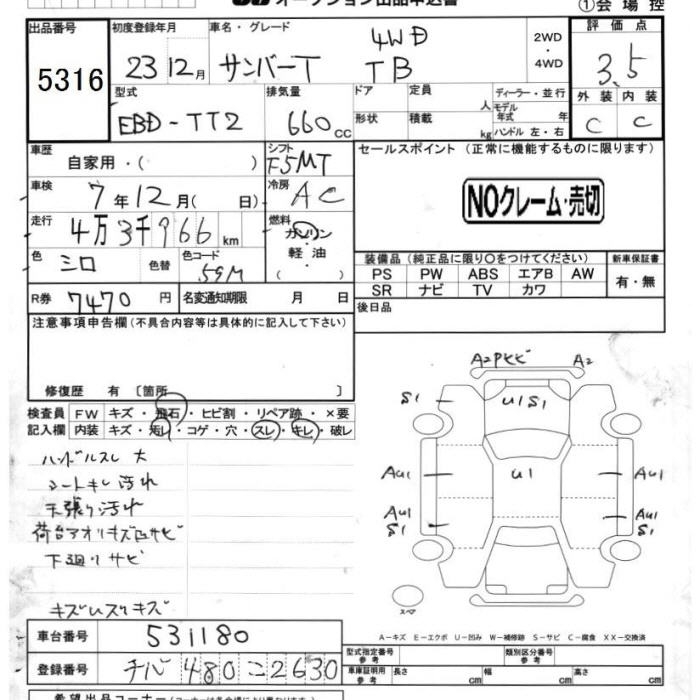 オークション出品申込書
①会場控
出品番号
5316
初度登録年月
23 12月
車名・グレード
サンバーT TB 4WD
2WD
・
4WD
評価点
3.5
外装 内装
C C
型式
EBD-TT2
排気量
660cc
ドア
形状
定員 人
積載 kg
ディーラー・並行
モデル年式 年
ハンドル 左・右
車歴
自家用・( )
シフト
F5MT
車検
7年12月( 日)
冷房
AC
走行
4万3千966km
燃料
ガソリン
軽油
色
シロ
色替
色コード
59M
R券
7470円
名変通知期限 月 日
セールスポイント (正常に機能するものに限ります)
NOクレーム・売切
装備品 (純正品に限り○をつけてください)
PS PW ABS エアB AW
SR ナビ TV カワ
新車保証書
有・無
後日品
注意事項申告欄(不具合内容等は具体的に記入して下さい)
修復歴 有 〔箇所 〕
検査員 FW キズ・飛石・ヒビ割・リペア跡・×要
記入欄 内装 キズ・汚レ・コゲ・穴・スレ・キレ・破レ
ハンドルスレ大
シートキレ汚れ
天張り汚れ
荷台アオリキズ凹サビ
下廻りサビ
A2 A2
S1 U1 S1
AU1 U1 AU1
AU1 AU1
S1 S1
スペア
A-キズ E-エクボ U-凹み W-補修跡 S-サビ C-腐食 XX-交換済
車台番号 531180
登録番号 チバ480こ2630
型式指定番号
参考
類別区分番号
参考
車庫証明用
参考
長さ cm 幅 cm 高さ cm
希望出品コーナー